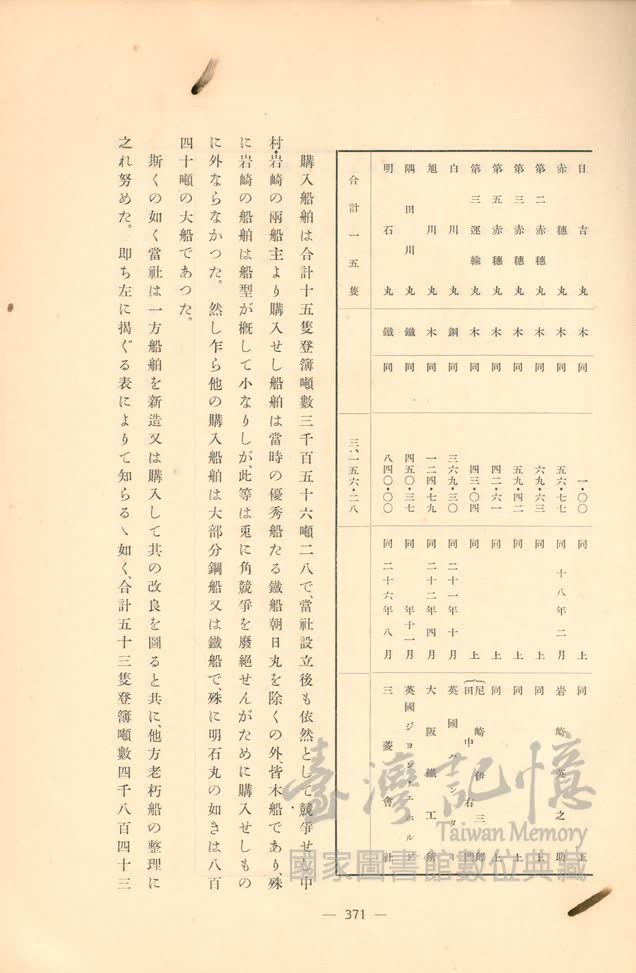 日吉丸 木 同 一・〇〇 同 上 同 上
赤穗丸 木 同 五六・七七 同 十八年二月 岩崎英之助
第二赤穗丸 木 同 六九・六三 同 上 同 上
第三赤穗丸 木 同 五九・四二 同 上 同 上
第五赤穗丸 木 同 四二・六一 同 上 同 上
第三運輸丸 木 同 四三・〇四 同 上 尼崎伊三郎 田中右
白川丸 鋼 同 三六九・三〇 同 二十一年十月 英國ハンター
旭川丸 木 同 一二四・七九 同 二十二年四月 大阪鐵工所
隅田川丸 鐵 同 四五〇・三七 同 年十一月 英國ジョン・エホルド
明石丸 鐵 同 八四〇・〇〇 同 二十六年八月 三菱會社
合計一五隻 三、一五六・二八
購入船舶は合計十五隻登簿噸數三千百五十六噸二八で、當社設立後も依然として競爭せし中
村・岩崎の兩船主より購入せし船舶は當時の優秀船たる鐵船朝日丸を除くの外、皆木船であり、殊
に岩崎の船舶は船型が槪して小なりしが、此等は兎に角競爭を廢絕せんがために購入せしもの
に外ならなかつた。然し乍ら他の購入船舶は大部分鋼船又は鐵船で、殊に明石丸の如きは八百
四十噸の大船であつた。
斯くの如く當社は一方船舶を新造又は購入して共の改良を圖ると共に、他方老朽船の整理に
之れ努めた。卽ち左に揭ぐる表によりて知らるゝ如く、合計五十三隻登簿噸數四千八百四十三
— 371 —
臺灣記憶
Taiwan Memory
國家圖書館數位典藏